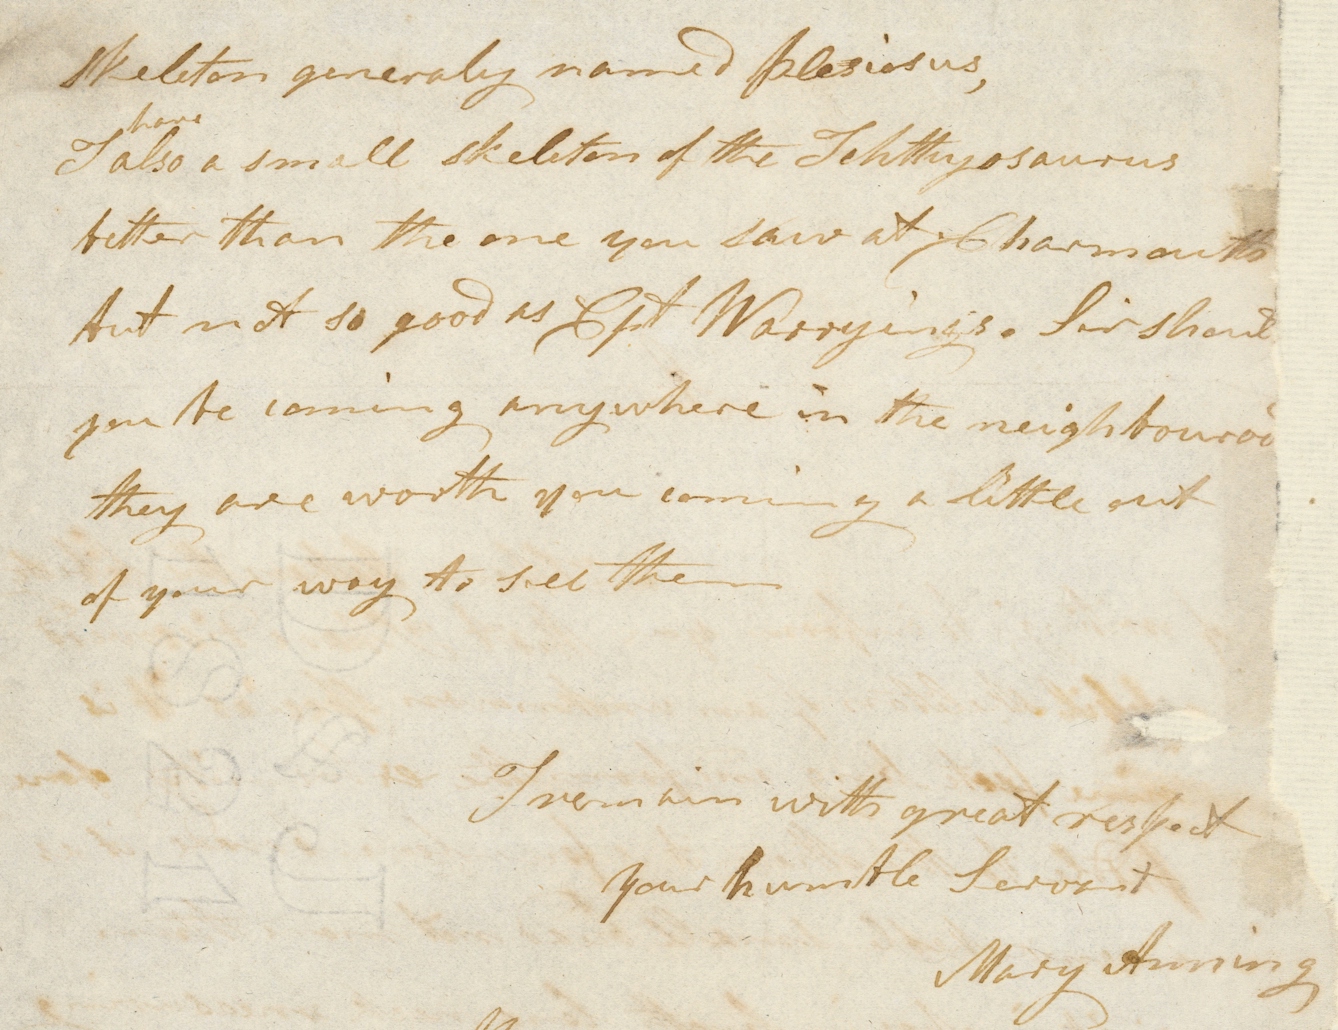 Skeleton generaly named plesiosus,
have
I also a small skeleton of the Ichthyosaurus
better than the one you saw at Charmouth
but not so good as Cpt Warryings. Sir shoud
you be coming anywhere in the neighbourod
they are worth you coming a little out
of your way to see them
I remain with great respect
your humble Servant
Mary Anning